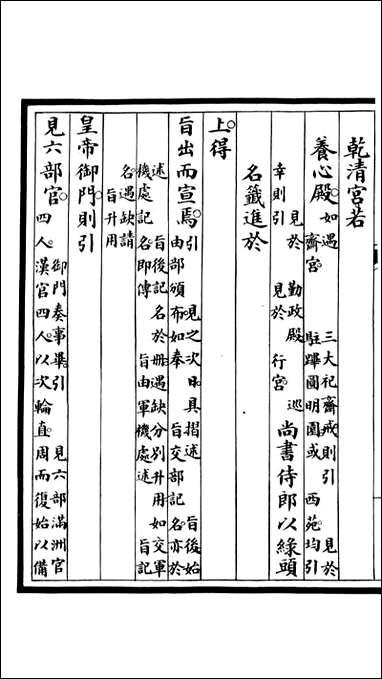 乾清宮若
養心殿。如遇 三大祀齋戒則引 見於
齋宮。駐蹕圓明園或 西苑均引
見於 勤政殿 巡
幸則引 見於 行宮。尚書侍郎以綠頭
名籤進於
上。得
旨出而宣焉。引 見之次日。具摺述 旨後始
由部頒布。如奉 旨交部記名。亦於
述 旨後記名於冊。遇缺分別升用。如交軍
機處記名。即傳 旨由軍機處述 旨記
名。遇缺請
旨升用
皇帝御門。則引
見六部官。御門奏事畢。引 見六部滿洲官
四人。漢官四人。以次輪直。周而復始。以備